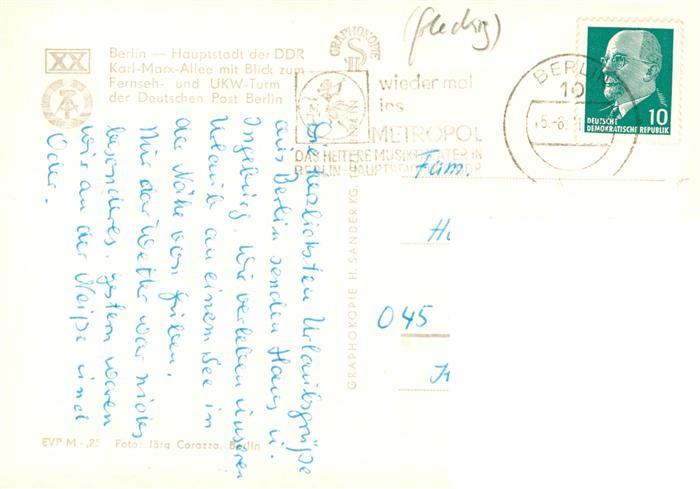 (fleckig)
XX
Berlin — Hauptstadt der DDR
Karl-Marx-Allee mit Blick zum
Fernseh- und UKW-Turm
der Deutschen Post Berlin
GRAPHOKOPIE
wieder mal
ins
METROPOL
DAS HEITERE MUSIKTHEATER IN
BERLIN-HAUPTSTADT DER DDR
BERLIN
10
DEUTSCHE
DEMOKRATISCHE REPUBLIK
10
Die herzlichsten Urlaubsgrüße
aus Berlin senden Hans u.
Ingeburg. Wir verleben unseren
Urlaub an einem See in
der Nähe von Guben.
Nur das Wetter war nichts
besonderes. Gestern waren
wir an der Neiße und
Oder.
GRAPHOKOPIE H. SANDER KG,
Fam.
045
EVP M -,25 Foto: Jörg Corazza, Berlin